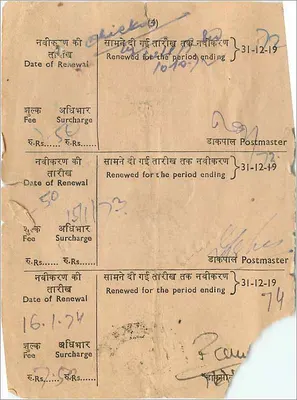 (9)
नवीकरण की सामने दी गई तारीख तक नवीकरण
तारीख 31-12-19 72
Date of Renewal Renewed for the period ending
शुल्क अधिभार
Fee Surcharge डाकपाल Postmaster
रु.Rs..... रु.Rs......
नवीकरण की सामने दी गई तारीख तक नवीकरण
तारीख 31-12-19
Date of Renewal Renewed for the period ending
50
15/1/73
शुल्क अधिभार
Fee Surcharge
रु.Rs..... रु.Rs...... डाकपाल Postmaster
नवीकरण की सामने दी गई तारीख तक नवीकरण
तारीख 31-12-19
Date of Renewal Renewed for the period ending
74
16.1.74
शुल्क अधिभार
Fee Surcharge
रु.Rs..... रु.Rs......